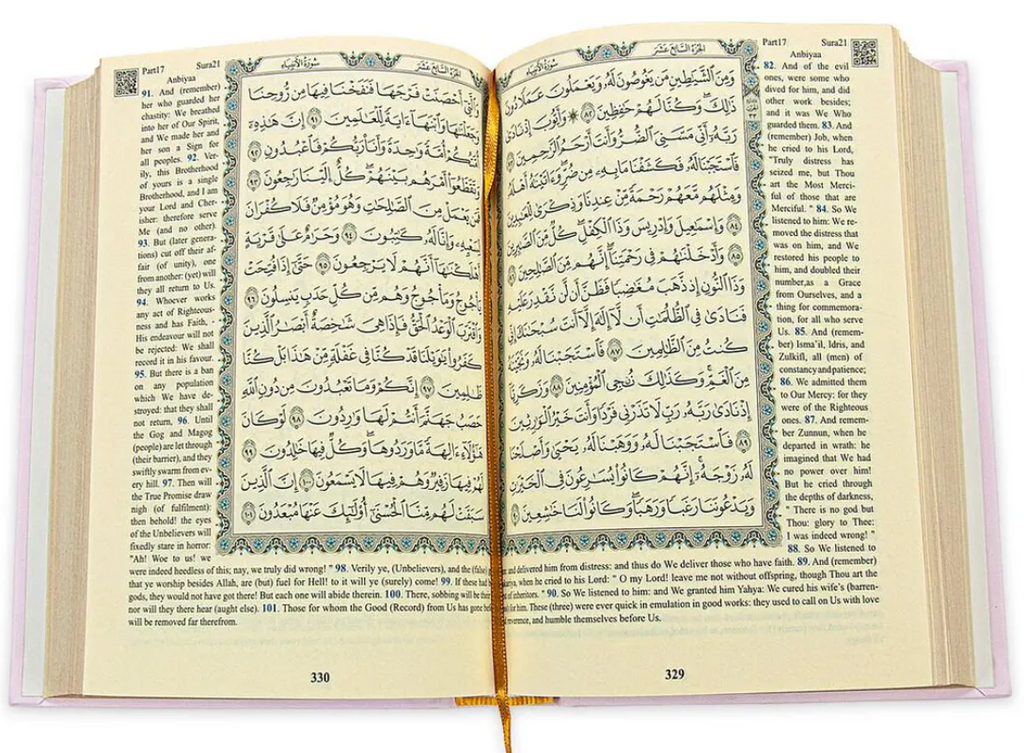 الجزء السابع عشر سورة الأنبياء
Part17 Sura21
Anbiyaa
وَمِنَ الشَّيَٰطِينِ مَن يَغُوصُونَ لَهُۥ وَيَعْمَلُونَ عَمَلًا دُونَ
ذَٰلِكَ ۖ وَكُنَّا لَهُمْ حَٰفِظِينَ ٨٢ ۞ وَأَيُّوبَ إِذْ نَادَىٰ
رَبَّهُۥٓ أَنِّى مَسَّنِىَ الضُّرُّ وَأَنتَ أَرْحَمُ الرَّٰحِمِينَ ٨٣
فَاسْتَجَبْنَا لَهُۥ فَكَشَفْنَا مَا بِهِۦ مِن ضُرٍّ ۖ وَءَاتَيْنَٰهُ أَهْلَهُۥ
وَمِثْلَهُم مَّعَهُمْ رَحْمَةً مِّنْ عِندِنَا وَذِكْرَىٰ لِلْعَٰبِدِينَ
٨٤ وَإِسْمَٰعِيلَ وَإِدْرِيسَ وَذَا الْكِفْلِ ۖ كُلٌّ مِّنَ الصَّٰبِرِينَ
٨٥ وَأَدْخَلْنَٰهُمْ فِى رَحْمَتِنَآ ۖ إِنَّهُم مِّنَ الصَّٰلِحِينَ ٨٦
وَذَا النُّونِ إِذ ذَّهَبَ مُغَٰضِبًا فَظَنَّ أَن لَّن نَّقْدِرَ عَلَيْهِ
فَنَادَىٰ فِى الظُّلُمَٰتِ أَن لَّآ إِلَٰهَ إِلَّآ أَنتَ سُبْحَٰنَكَ إِنِّى
كُنتُ مِنَ الظَّٰلِمِينَ ٨٧ فَاسْتَجَبْنَا لَهُۥ وَنَجَّيْنَٰهُ
مِنَ الْغَمِّ ۚ وَكَذَٰلِكَ نُۨجِى الْمُؤْمِنِينَ ٨٨ وَزَكَرِيَّآ
إِذْ نَادَىٰ رَبَّهُۥ رَبِّ لَا تَذَرْنِى فَرْدًا وَأَنتَ خَيْرُ الْوَٰرِثِينَ
٨٩ فَاسْتَجَبْنَا لَهُۥ وَوَهَبْنَا لَهُۥ يَحْيَىٰ وَأَصْلَحْنَا
لَهُۥ زَوْجَهُۥٓ ۚ إِنَّهُمْ كَانُوا۟ يُسَٰرِعُونَ فِى الْخَيْرَٰتِ
وَيَدْعُونَنَا رَغَبًا وَرَهَبًا ۖ وَكَانُوا۟ لَنَا خَٰشِعِينَ ٩٠
82. And of the evil
ones, were some who
dived for him, and did
other work besides;
and it was We Who
guarded them. 83. And
(remember) Job, when
he cried to his Lord,
"Truly distress has
seized me, but Thou
art the Most Merci-
ful of those that are
Merciful. " 84. So We
listened to him: We re-
moved the distress that
was on him, and We
restored his people to
him, and doubled their
number,as a Grace
from Ourselves, and a
thing for commemora-
tion, for all who serve
Us. 85. And (remem-
ber) Isma'il, Idris, and
Zulkifl, all (men) of
constancy and patience;
86. We admitted them
to Our Mercy: for they
were of the Righteous
ones. 87. And remem-
ber Zunnun, when he
departed in wrath: he
imagined that We had
no power over him!
But he cried through
the depths of darkness,
" There is no god but
Thou: glory to Thee:
I was indeed wrong! "
88. So We listened to
and delivered him from distress: and thus do We deliver those who have faith. 89. And (remember)
when he cried to his Lord: " O my Lord! leave me not without offspring, though Thou art the
of inheritors. " 90. So We listened to him: and We granted him Yahya: We cured his wife's (barren-
for him. These (three) were ever quick in emulation in good works: they used to call on Us with love
and humble themselves before Us.
329
سورة الأنبياء الجزء السابع عشر
Part17 Sura21
Anbiyaa
وَالَّتِىٓ أَحْصَنَتْ فَرْجَهَا فَنَفَخْنَا فِيهَا مِن رُّوحِنَا
وَجَعَلْنَٰهَا وَابْنَهَآ ءَايَةً لِّلْعَٰلَمِينَ ٩١ إِنَّ هَٰذِهِۦٓ
أُمَّتُكُمْ أُمَّةً وَٰحِدَةً وَأَنَا۠ رَبُّكُمْ فَاعْبُدُونِ ٩٢
وَتَقَطَّعُوٓا۟ أَمْرَهُم بَيْنَهُمْ ۖ كُلٌّ إِلَيْنَا رَٰجِعُونَ ٩٣
فَمَن يَعْمَلْ مِنَ الصَّٰلِحَٰتِ وَهُوَ مُؤْمِنٌ فَلَا كُفْرَانَ
لِسَعْيِهِۦ وَإِنَّا لَهُۥ كَٰتِبُونَ ٩٤ وَحَرَٰمٌ عَلَىٰ قَرْيَةٍ
أَهْلَكْنَٰهَآ أَنَّهُمْ لَا يَرْجِعُونَ ٩٥ حَتَّىٰٓ إِذَا فُتِحَتْ
يَأْجُوجُ وَمَأْجُوجُ وَهُم مِّن كُلِّ حَدَبٍ يَنسِلُونَ ٩٦
وَاقْتَرَبَ الْوَعْدُ الْحَقُّ فَإِذَا هِىَ شَٰخِصَةٌ أَبْصَٰرُ الَّذِينَ
كَفَرُوا۟ يَٰوَيْلَنَا قَدْ كُنَّا فِى غَفْلَةٍ مِّنْ هَٰذَا بَلْ كُنَّا
ظَٰلِمِينَ ٩٧ إِنَّكُمْ وَمَا تَعْبُدُونَ مِن دُونِ اللَّهِ
حَصَبُ جَهَنَّمَ أَنتُمْ لَهَا وَٰرِدُونَ ٩٨ لَوْ كَانَ
هَٰٓؤُلَآءِ ءَالِهَةً مَّا وَرَدُوهَا ۖ وَكُلٌّ فِيهَا خَٰلِدُونَ ٩٩
لَهُمْ فِيهَا زَفِيرٌ وَهُمْ فِيهَا لَا يَسْمَعُونَ ١٠٠ إِنَّ الَّذِينَ
سَبَقَتْ لَهُم مِّنَّا الْحُسْنَىٰٓ أُو۟لَٰٓئِكَ عَنْهَا مُبْعَدُونَ ١٠١
91. And (remember)
her who guarded her
chastity: We breathed
into her of Our Spirit,
and We made her and
her son a Sign for
all peoples. 92. Ver-
ily, this Brotherhood
of yours is a single
Brotherhood, and I am
your Lord and Cher-
isher: therefore serve
Me (and no other).
93. But (later genera-
tions) cut off their af-
fair (of unity), one
from another: (yet) will
they all return to Us.
94. Whoever works
any act of Righteous-
ness and has Faith, -
His endeavour will not
be rejected: We shall
record it in his favour.
95. But there is a ban
on any population
which We have de-
stroyed: that they shall
not return, 96. Until
the Gog and Magog
(people) are let through
(their barrier), and they
swiftly swarm from ev-
ery hill. 97. Then will
the True Promise draw
nigh (of fulfilment):
then behold! the eyes
of the Unbelievers will
fixedly stare in horror:
"Ah! Woe to us! we
were indeed heedless of this; nay, we truly did wrong! " 98. Verily ye, (Unbelievers), and the (false)
that ye worship besides Allah, are (but) fuel for Hell! to it will ye (surely) come! 99. If these had
gods, they would not have got there! But each one will abide therein. 100. There, sobbing will be their
nor will they there hear (aught else). 101. Those for whom the Good (Record) from Us has gone
will be removed far therefrom.
330